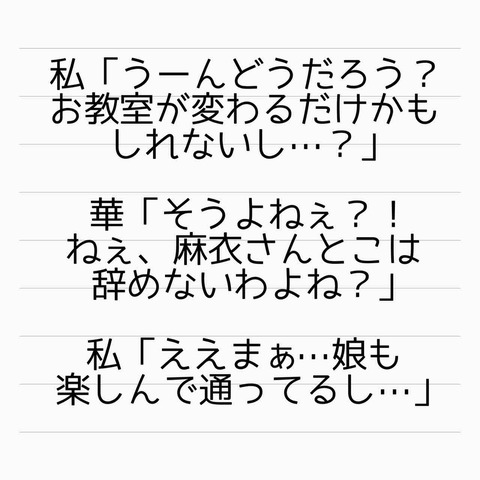 私「うーんどうだろう?
お教室が変わるだけかも
しれないし…?」
華「そうよねぇ?!
ねぇ、麻衣さんとこは
辞めないわよね?」
私「ええまぁ…娘も
楽しんで通ってるし…」